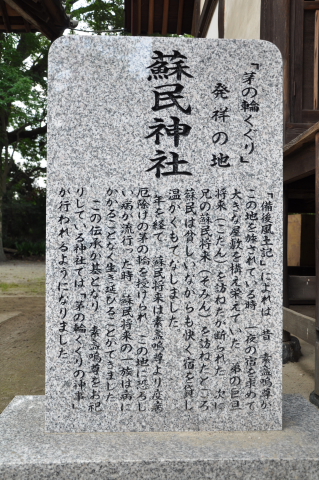 「茅の輪くぐり」
発祥の地
蘇民神社
「備後風土記」によれば 昔 素盞嗚尊が
この地を旅されている時 一夜の宿を求めて
大きな屋敷を構え栄えていた 弟の巨旦
将来(こたん)を訪ねたが断られ 次に
兄の蘇民将来(そみん)を訪ねたところ
蘇民は貧しいながらも快く宿を貸し
温かくもてなしました
年を経て 蘇民将来は素盞嗚尊より疫病
厄除けの茅の輪を授けられ この地に恐ろし
い病が流行った時 蘇民将来の一族は病に
かかることなく生き延びることができました
この伝承が基となり 素盞嗚尊をお祀
りしている神社では「茅の輪くぐりの神事」
が行われるようになりました